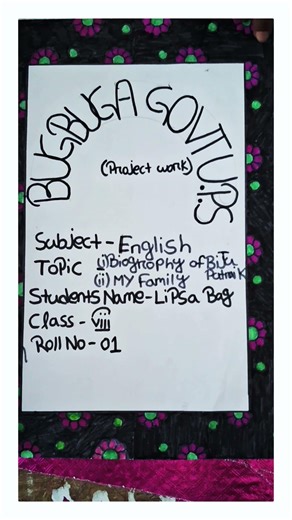 BUGBUGA GOVT U.P.S
(Project work)
Subject - English
Topic (i) Biography of Biju Patnaik
(ii) MY Family
Students Name - LiPSa Bag
Class - viii
Roll No - 01